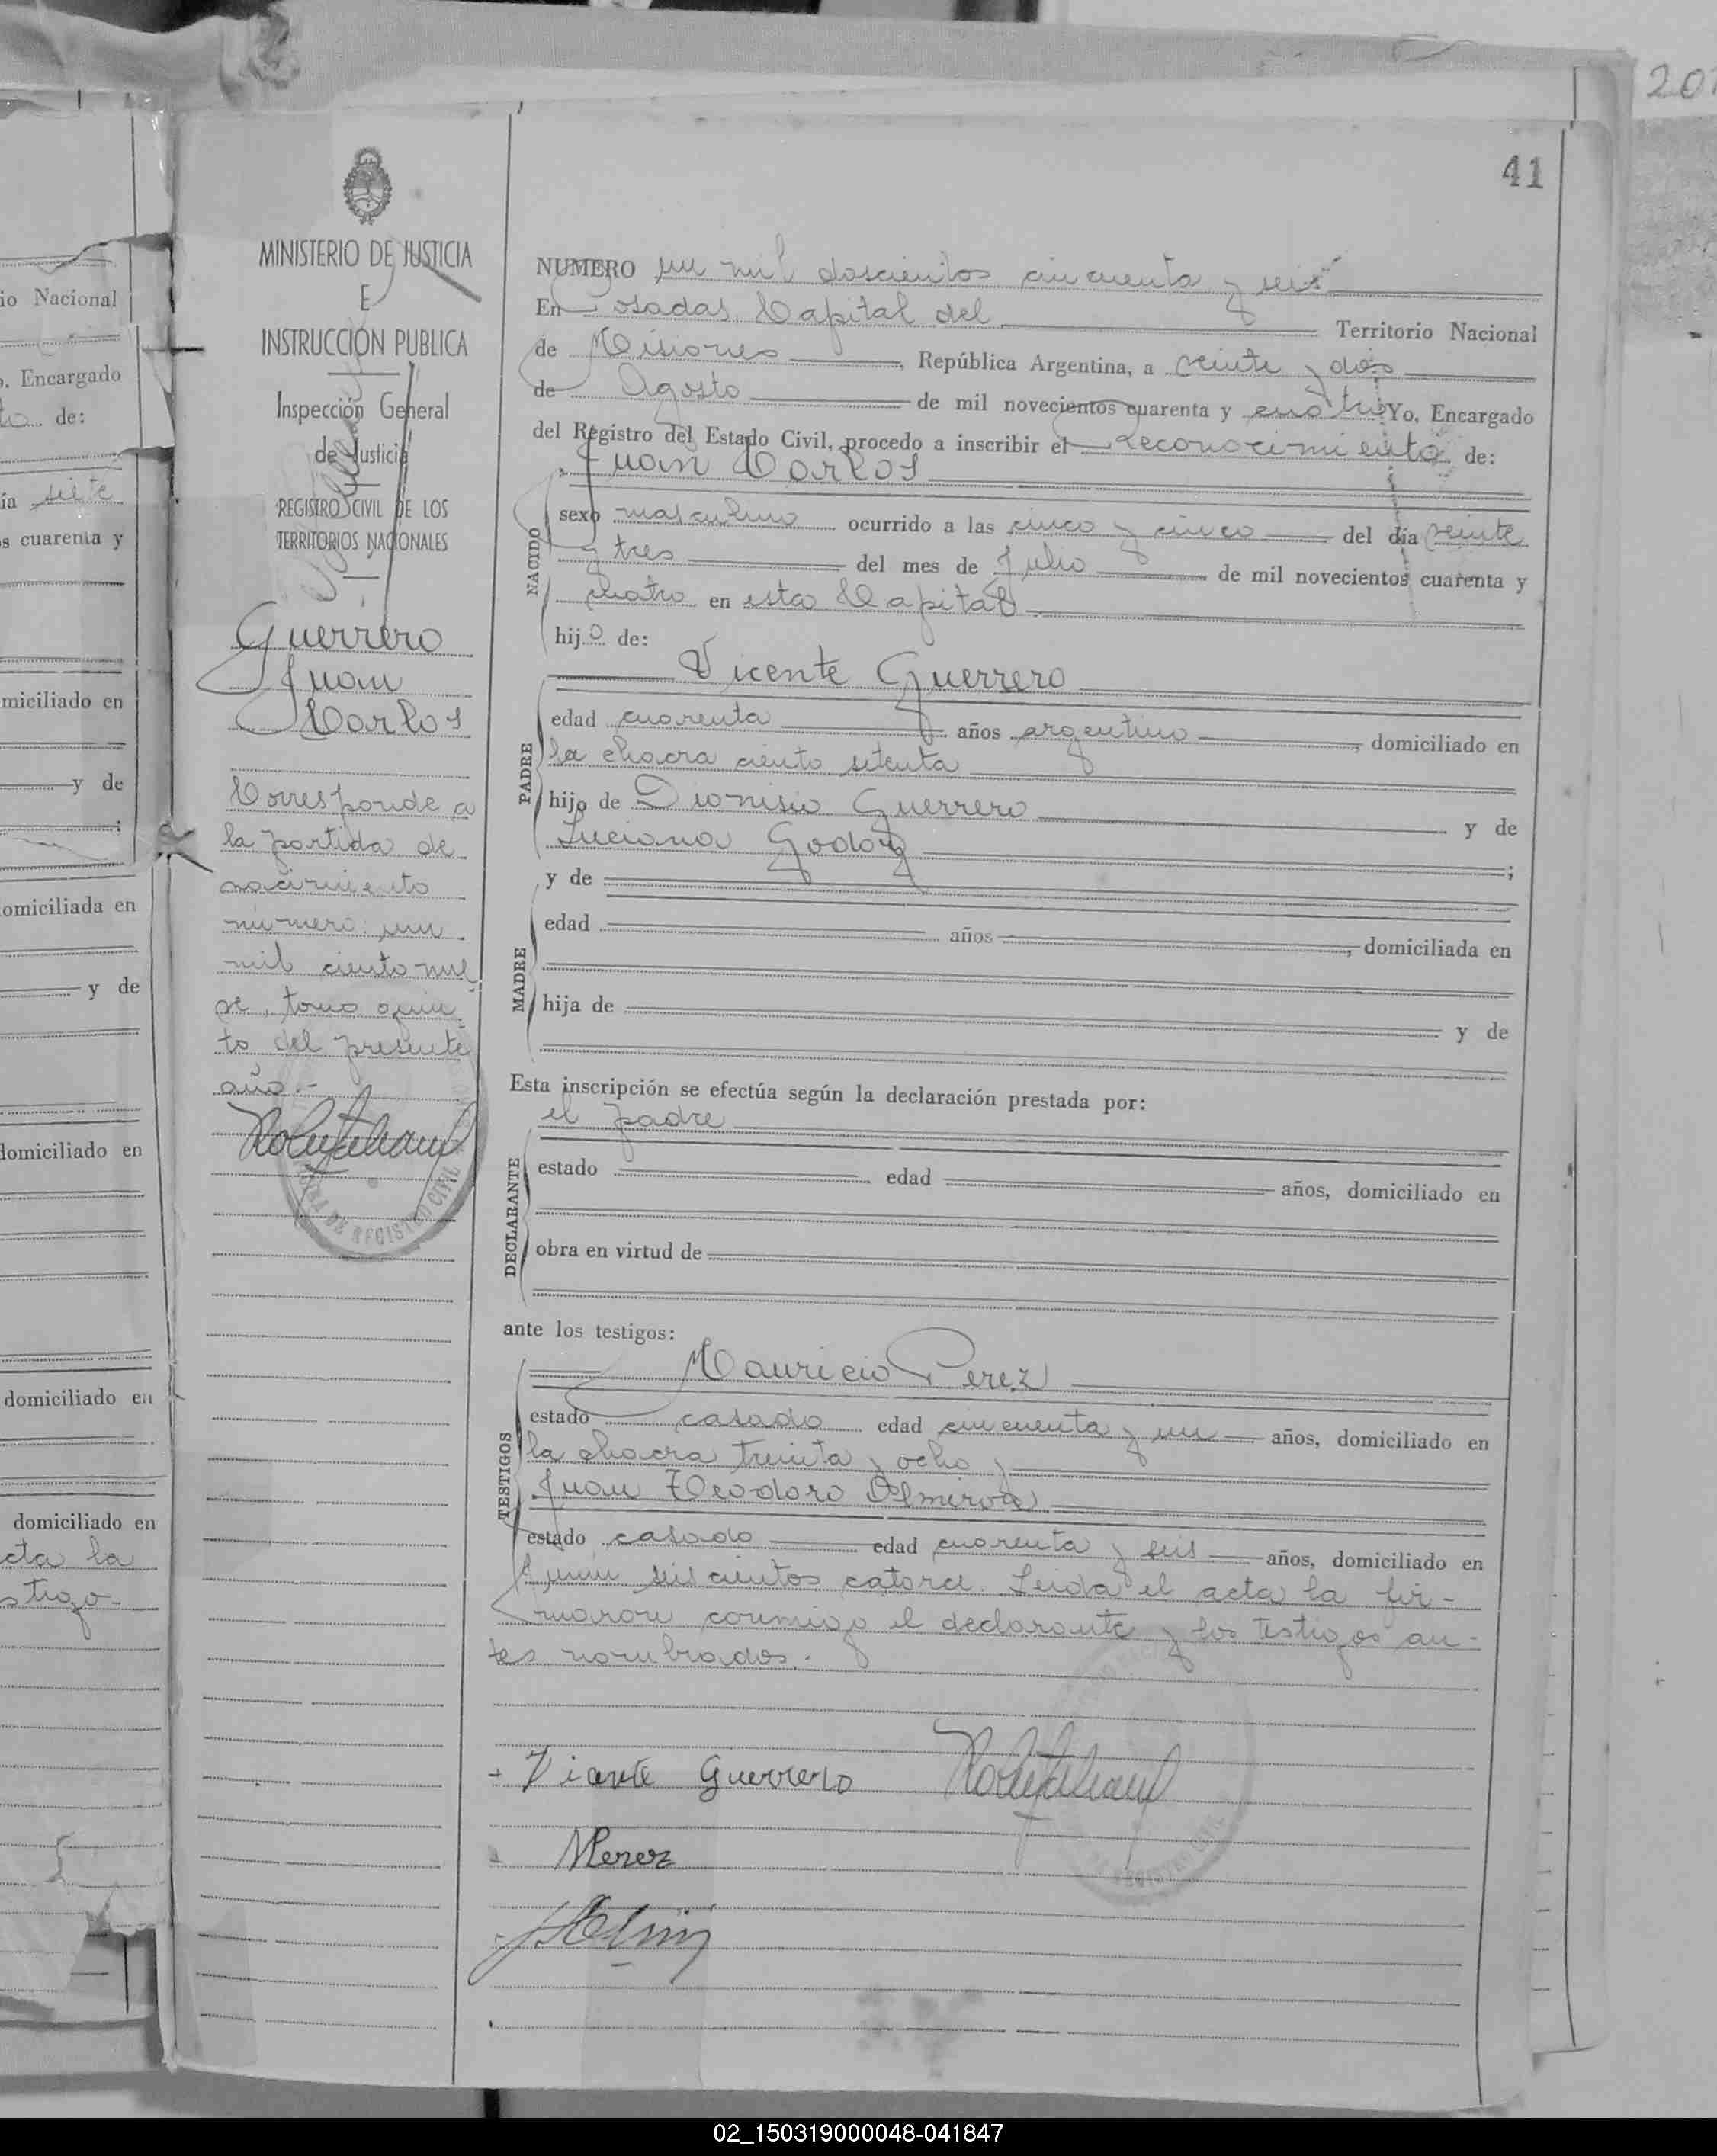 201
41
MINISTERIO DE JUSTICIA
E
INSTRUCCIÓN PUBLICA
Inspección General
de Justicia
REGISTRO CIVIL DE LOS
TERRITORIOS NACIONALES
Guerrero
Juan
Carlos
Corresponde a
la partida de
nacimiento
número un
mil ciento nue
ve, tomo quin
to del presente
año.-
NUMERO un mil doscientos cincuenta y seis
En Posadas Capital del Territorio Nacional
de Misiones, República Argentina, a veinte y dos
de Agosto de mil novecientos cuarenta y cuatro Yo, Encargado
del Registro del Estado Civil, procedo a inscribir el reconocimiento de:
Juan Carlos
NACIDO
sexo masculino ocurrido a las cinco y cinco del día veinte
y tres del mes de Julio de mil novecientos cuarenta y
cuatro en esta Capital
hijo de:
Vicente Guerrero
PADRE
edad cuarenta años argentino, domiciliado en
la chacra ciento setenta
hijo de Dionisio Guerrero y de
Luciana Godoy;
MADRE
y de
edad años, domiciliada en
hija de y de
Esta inscripción se efectúa según la declaración prestada por:
el padre
DECLARANTE
estado edad años, domiciliado en
obra en virtud de
ante los testigos:
Mauricio Perez
TESTIGOS
estado casado edad cincuenta y un años, domiciliado en
la chacra treinta y ocho y
Juan Teodoro Almirón
estado casado edad cuarenta y seis años, domiciliado en
Junín seiscientos catorce. Leida el acta la fir-
maron conmigo el declarante y los testigos an-
tes nombrados.-
Vicente Guerrero
MPerez
REGISTRO CIVIL
io Nacional
o, Encargado
to de:
ía siete
s cuarenta y
miciliado en
y de
omiciliada en
y de
domiciliado en
domiciliado en
domiciliado en
cta la
stigo
02_150319000048-041847